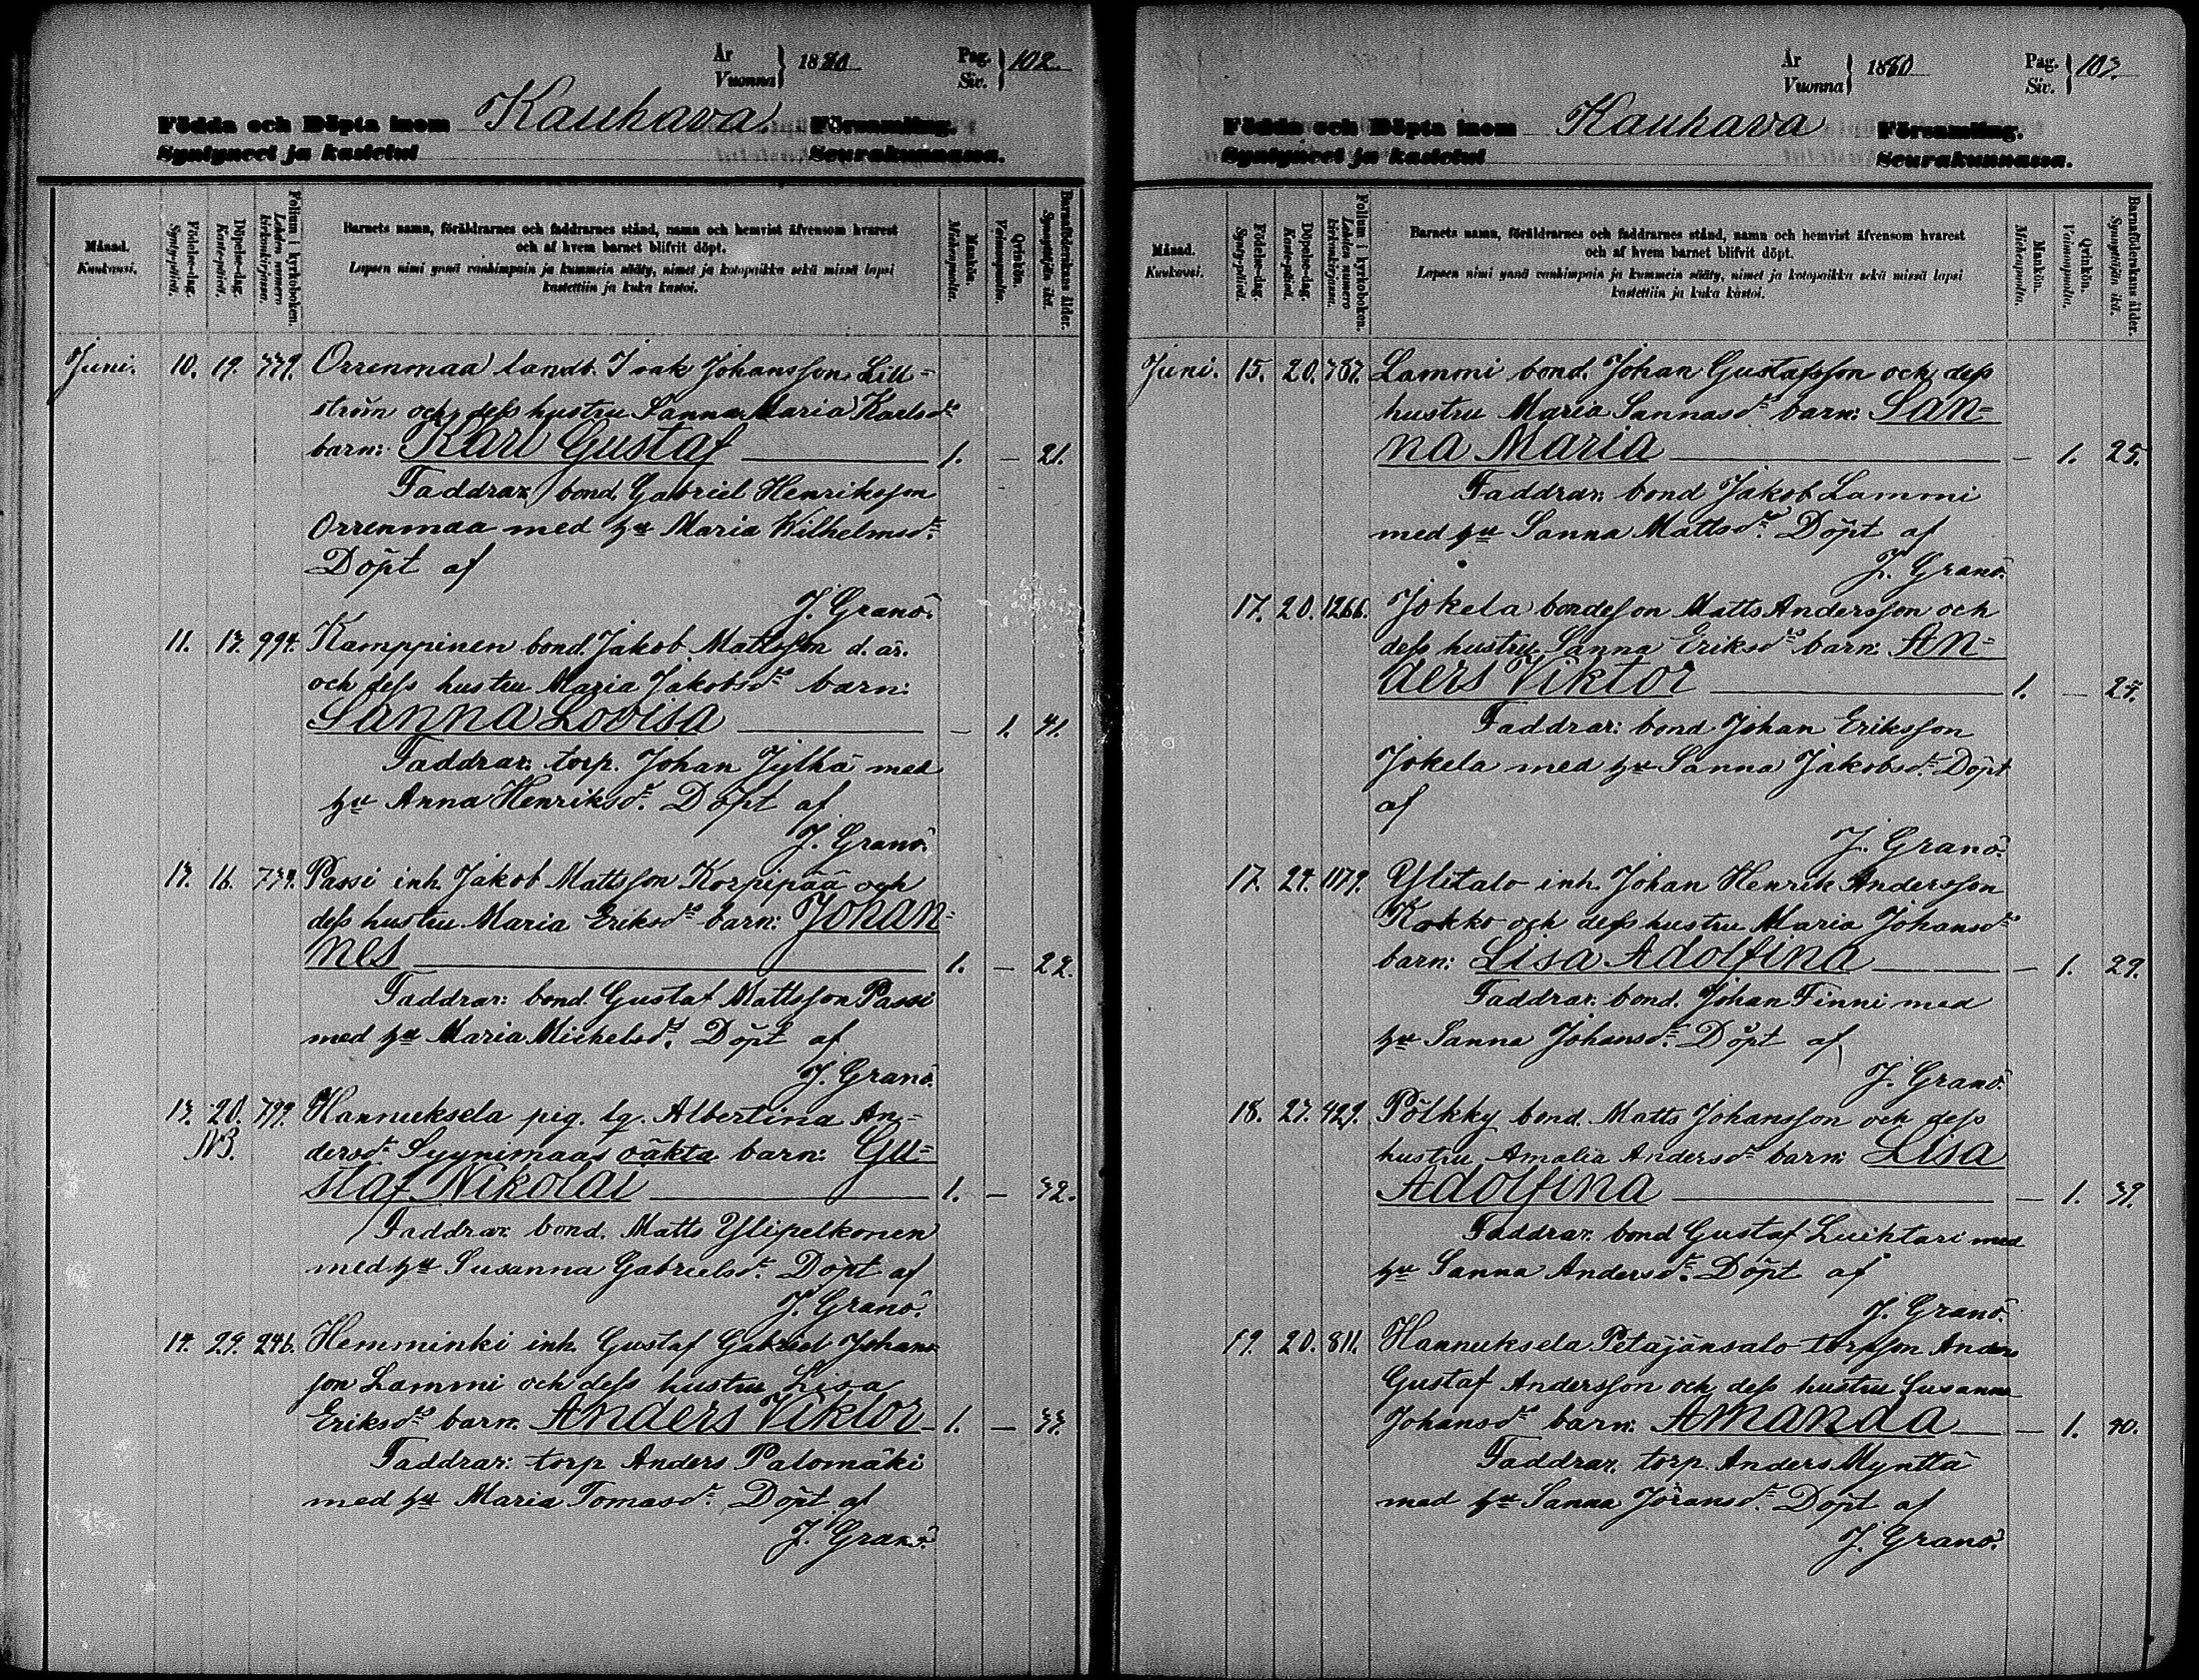 År
Vuonna } 1880 Pag.
Siv. } 102.
Födda och Döpta inom Kauhava Församling.
Syntyneet ja kastetut Seurakunnassa.
Månad.
Kuukausi.
Födelse-dag.
Synty-päivä.
Döpelse-dag.
Kaste-päivä.
Folium i kyrkoboken.
Lehden numero kirkonkirjassa.
Barnets namn, föräldrarnes och faddrarnes stånd, namn och hemvist äfvensom hvarest
och af hvem barnet blifvit döpt.
Lapsen nimi ynnä vanhimpain ja kummein sääty, nimet ja kotopaikka sekä missä lapsi
kastettiin ja kuka kastoi.
Mankön.
Miehenpuolia.
Qvinkön.
Vaimonpuolia.
Barnaföderskans ålder.
Synnyttäjän ikä.
Juni. 10. 19. 779. Orrenmaa landb. Isak Johansson Lill=
ström och dess hustru Sanna Maria Karlsd:s
barn: Karl Gustaf 1. — 21.
Faddrar: bond. Gabriel Henriksson
Orrenmaa med hu Maria Wilhelmsd:r
Döpt af
J. Granö.
11. 13. 994. Kamppinen bond. Jakob Mattsson d. ä:
och dess hustru Maria Jakobsd:s barn:
Sanna Lovisa — 1. 41.
Faddrar: torp. Johan Jylhä med
hu Anna Henriksd:r Döpt af
J. Granö.
13. 16. 734. Passi inh. Jakob Mattsson Korpipää och
dess hustru Maria Eriksd:s barn: Johan=
nes 1. — 22.
Faddrar: bond. Gustaf Mattsson Passi
med hu Maria Michelsd:r Döpt af
J. Granö.
13. 20. 799. Hannuksela pig. lg. Albertina An=
NB.
dersd:r Syynimaas oäkta barn: Gu=
staf Nikolai 1. — 32.
Faddrar: bond. Matts Ylipelkonen
med hu Susanna Gabrielsd:r Döpt af
J. Granö.
14. 29. 246. Hemminki inh. Gustaf Gabriel Johans
son Lammi och dess hustru Lisa
Eriksd:s barn: Anders Viktor 1. — 33.
Faddrar: torp Anders Palomäki
med hu Maria Tomasd:r Döpt af
J. Granö.
År
Vuonna } 1880 Pag.
Siv. } 103.
Födda och Döpta inom Kauhava Församling.
Syntyneet ja kastetut Seurakunnassa.
Månad.
Kuukausi.
Födelse-dag.
Synty-päivä.
Döpelse-dag.
Kaste-päivä.
Folium i kyrkoboken.
Lehden numero kirkonkirjassa.
Barnets namn, föräldrarnes och faddrarnes stånd, namn och hemvist äfvensom hvarest
och af hvem barnet blifvit döpt.
Lapsen nimi ynnä vanhimpain ja kummein sääty, nimet ja kotopaikka sekä missä lapsi
kastettiin ja kuka kastoi.
Mankön.
Miehenpuolia.
Qvinkön.
Vaimonpuolia.
Barnaföderskans ålder.
Synnyttäjän ikä.
Juni. 15. 20. 787. Lammi bond. Johan Gustafsson och dess
hustru Maria Sannasd:s barn: San=
na Maria — 1. 25.
Faddrar: bond Jakob Lammi
med hu Sanna Mattsd:r Döpt af
J. Granö.
17. 20. 1266. Jokela bondeson Matts Andersson och
dess hustru Sanna Eriksd:s barn: An=
ders Viktor 1. —
Faddrar: bond Johan Eriksson
Jokela med hu Sanna Jakobsd:r Döpt
af
J. Granö.
17. 24. 1179. Ylitalo inh. Johan Henrik Andersson
Kokko och dess hustru Maria Johansd:s
barn: Lisa Adolfina — 1. 29.
Faddrar: bond. Johan Finni med
hu Sanna Johansd:r Döpt af
J. Granö.
18. 27. 429. Pölkky bond. Matts Johansson och dess
hustru Amalia Andersd:s barn: Lisa
Adolfina — 1. 39.
Faddrar: bond Gustaf Luihtari med
hu Sanna Andersd:r Döpt af
J. Granö.
19. 20. 811. Hannuksela Petäjänsalo torpson Anders
Gustaf Andersson och dess hustru Susanna
Johansd:s barn: Amanda — 1. 40.
Faddrar: torp. Anders Myntta
med hu Sanna Jöransd:r Döpt af
J. Granö.